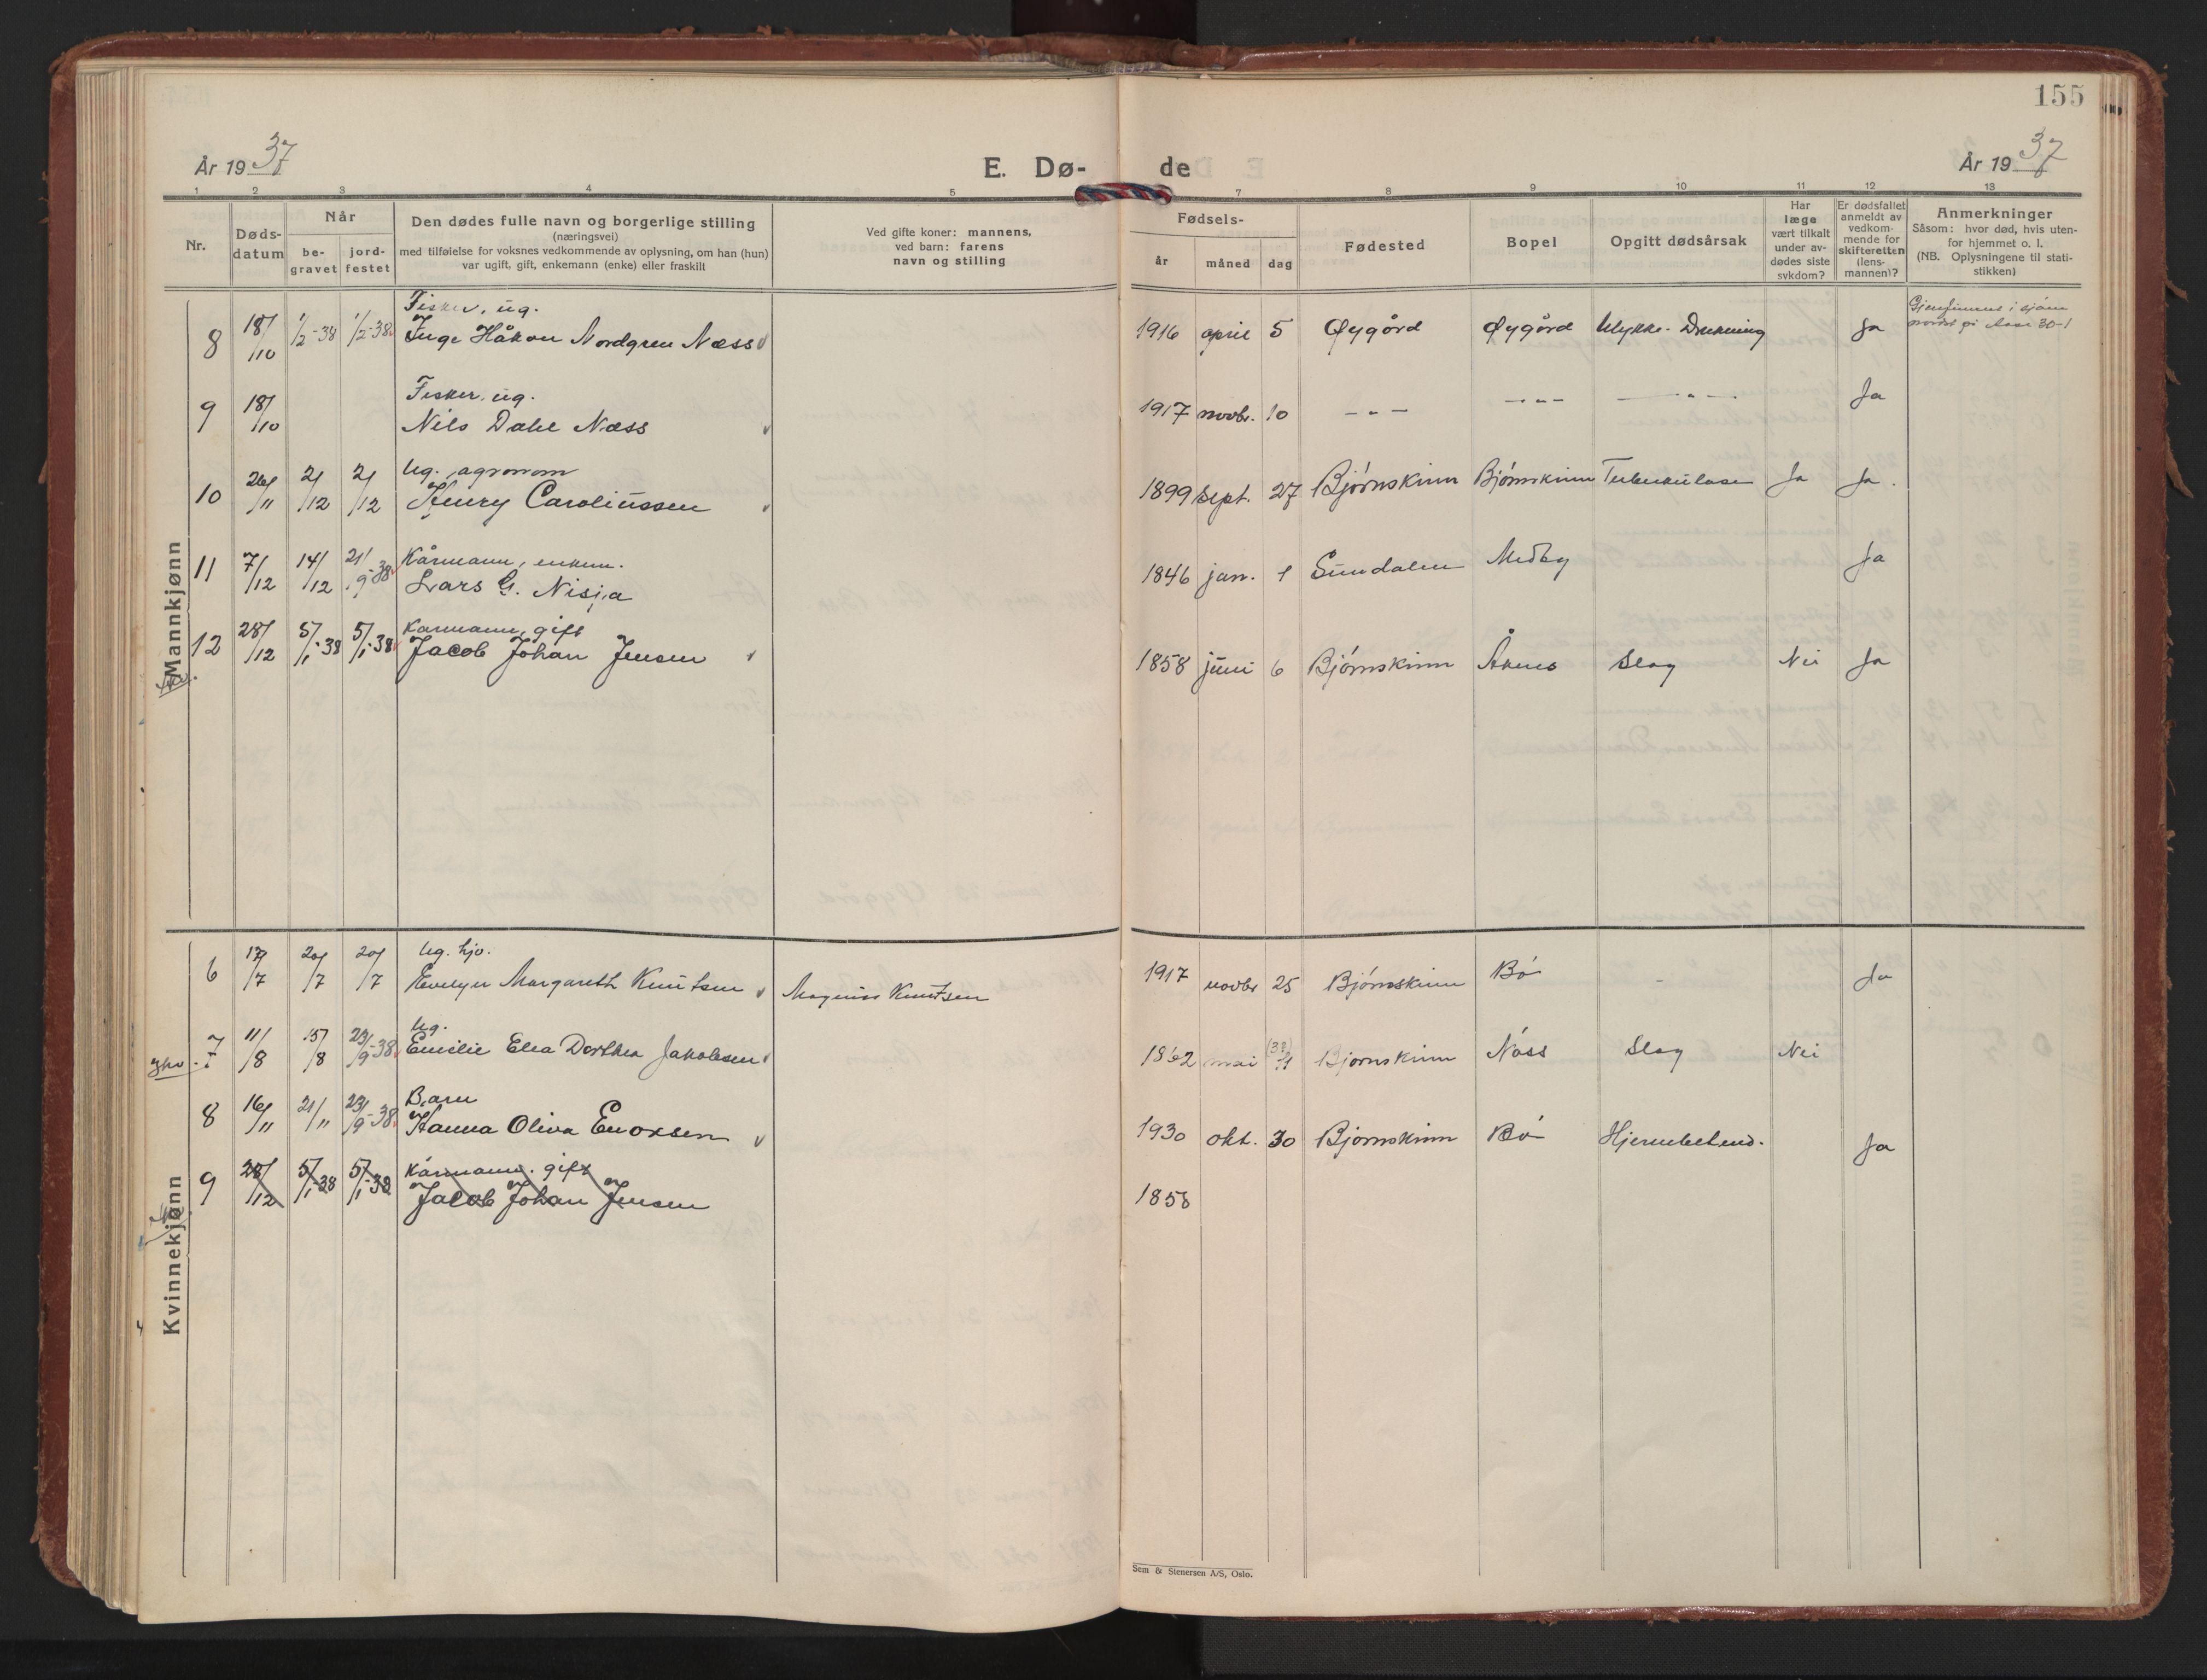 155
År 1937
E. Dø-
de
År 1937
1 2 3 4 5 7 8 9 10 11 12 13
Nr.
Døds-
datum
Når
be-
gravet
jord-
festet
Den dødes fulle navn og borgerlige stilling
(næringsvei)
med tilføielse for voksnes vedkommende av oplysning, om han (hun)
var ugift, gift, enkemann (enke) eller fraskilt
Ved gifte koner: mannens,
ved barn: farens
navn og stilling
Fødsels-
år
måned
dag
Fødested
Bopel
Opgitt dødsårsak
Har
læge
vært tilkalt
under av-
dødes siste
sykdom?
Er dødsfallet
anmeldt av
vedkom-
mende for
skifteretten
(lens-
mannen)?
Anmerkninger
Såsom: hvor død, hvis uten-
for hjemmet o. l.
(NB. Oplysningene til stati-
stikken)
Mannkjønn
Fisker, ug.
8 18/10 1/2-38 1/2-38 Inge Håkon Nordgren Næss 1916 april 5 Øygård Øygård Ulykke. Drukning Ja
Gjenfunnet i sjøen
30-1
Fisker, ug.
9 18/10 Nils Dahl Næss 1917 novbr. 10 -"- -"- -"- Ja
Ug. agronom
10 26/11 2/12 2/12 Henry Carolinssen 1899 sept. 27 Bjørnskinn Bjørnskinn Tuberkulose Ja Ja.
Kårmann, enkem.
11 7/12 14/12 21/9-38 Lars G. Nisja 1846 jan. 1 Sundalen Medby Ja
Kårmann, gift
12 28/12 5/1-38 5/1-38 Jacob Johan Jensen 1858 juni 6 Bjørnskinn Åknes Slag Nei Ja
Kvinnekjønn
Ug. hjv.
6 17/7 20/7 20/7 Evelyn Margareth Knutsen Magnus Knutsen 1917 novbr 25 Bjørnskinn Bø - Ja
Ug.
7 11/8 15/8 23/9-38 Emilie Elea Dorthea Jakobsen 1862 mai (31) 11 Bjørnskinn Nøss Slag Nei
Barn
8 16/11 21/11 23/9-38 Hanna Oliva Enoxsen 1930 okt. 30 Bjørnskinn Bø Hjernebetend. Ja
Kårmann. gift
9 28/12 5/1-38 5/1-38 Jacob Johan Jensen 1858
Sem & Stenersen A/S, Oslo.